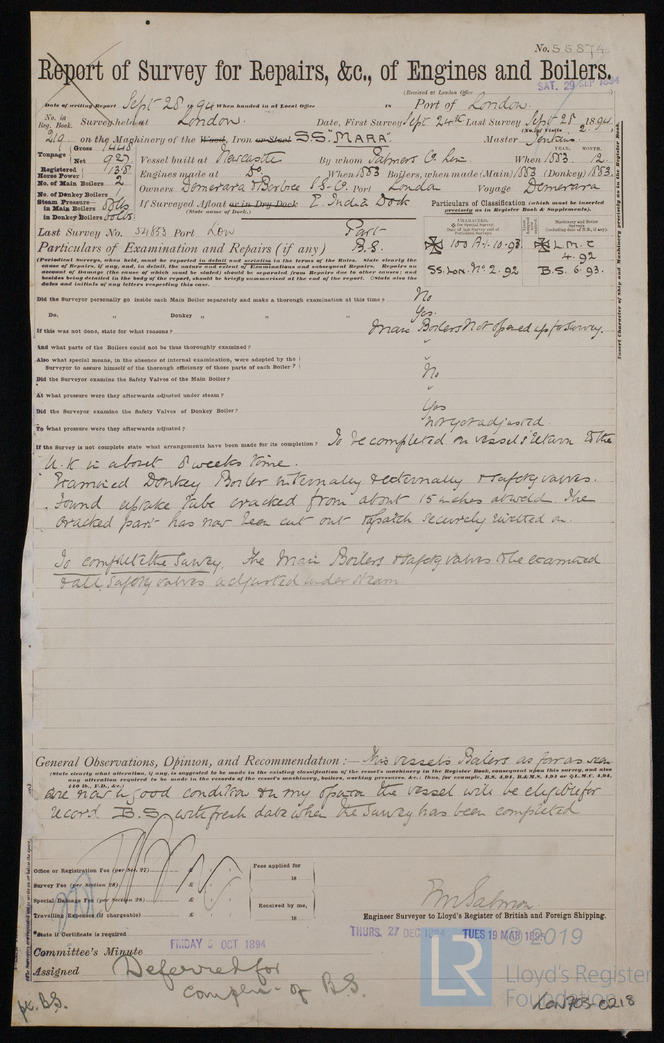 No. 55874
Report of Survey for Repairs, &c., of Engines and Boilers.
(Received at London Office SAT. 29 SEP 1894
Date of writing Report Sept 28 1894 When handed in at Local Office 18 Port of London.
No. in Reg. Book. Survey held at London. Date, First Survey Sept 24th Last Survey Sept 28 1894
(No. of Visits 2.)
219 on the Machinery of the Wood, Iron or Steel S.S. "MARA" Master Jenkins.
Tonnage Gross 1448
Net 927 Vessel built at Newcastle By whom Palmers Co Lim When 1883 12.
YEAR. MONTH.
Registered Horse Power 138 Engines made at Do. When 1883 Boilers, when made (Main) 1883 (Donkey) 1883.
No. of Main Boilers 2
No. of Donkey Boilers 1 Owners Demerara & Berbice S.S. Co. Port London Voyage Demerara
Steam Pressure in Main Boilers 80lbs If Surveyed Afloat or in Dry Dock E. India Dock
in Donkey Boilers 60lbs. (State name of Dock.)
Particulars of Classification (which must be inserted precisely as in Register Book & Supplements).
Last Survey No. 54853 Port Lon Part B.S.
100 A1. 10.93. L.M.C 4.92
SS. Lon. No. 2. 92 B.S. 6.93.
Particulars of Examination and Repairs (if any)
(Periodical Surveys, when held, must be reported in detail and seriatim in the terms of the Rules. State clearly the cause of Repairs, if any, and, in detail, the nature and extent of Examinations and subsequent Repairs. Repairs on account of Damage (the cause of which must be stated) should be separated from Repairs due to other causes; and besides being detailed in the body of the report, should be briefly summarised at the end of the report. State also the dates and initials of any letters respecting this case.
Did the Surveyor personally go inside each Main Boiler separately and make a thorough examination at this time? No
Do. " Donkey " " " Yes.
If this was not done, state for what reasons? Main Boilers not opened up for survey.
And what parts of the Boilers could not be thus thoroughly examined? "
Also what special means, in the absence of internal examination, were adopted by the Surveyor to assure himself of the thorough efficiency of those parts of each Boiler? "
Did the Surveyor examine the Safety Valves of the Main Boiler? No
At what pressure were they afterwards adjusted under steam? "
Did the Surveyor examine the Safety Valves of Donkey Boiler? Yes
To what pressure were they afterwards adjusted? Not yet adjusted.
If the Survey is not complete state what arrangements have been made for its completion? To be completed on vessels return to the
U.K. in about 8 weeks time.
Examined Donkey Boiler internally & externally & safety valves.
Found uptake tube cracked from about 15 inches at weld. The
cracked part has now been cut out & patch securely riveted on.
To complete the Survey, The Main Boilers & safety valves to be examined
& all safety valves adjusted under steam
General Observations, Opinion, and Recommendation:— This vessels Boilers as far as seen
(State clearly what alteration, if any, is suggested to be made in the existing classification of the vessel's machinery in the Register Book, consequent upon this survey, and also any alteration required to be made in the records of the vessel's machinery, boilers, working pressures, &c.: thus, for example, B.S. 4,94, B.&M.S. 4,94 or L.M.C. 4,94, 140 lb., F.D., &c.)
are now in good condition & in my opinion the vessel will be eligible for
record B.S. with fresh date when the Survey has been completed
Office or Registration Fee (per Sec. 27) £ : : Fees applied for
Survey Fee (per Section 28) £ : : 18
Special Damage Fee (per Section 28) £ : : Received by me,
Travelling Expenses (if chargeable) £ : : 18
E W Salmon
Engineer Surveyor to Lloyd's Register of British and Foreign Shipping.
State if Certificate is required
Committee's Minute FRIDAY 5 OCT 1894 THURS. 27 DEC 1894 TUES 19 MAR 1895
Assigned Deferred for
comple: of B.S.
pt. B.S.
© 2019
LR
Lloyd's Register
Foundation
LON703-0218
Insert Character of Ship and Machinery precisely as in the Register Book.